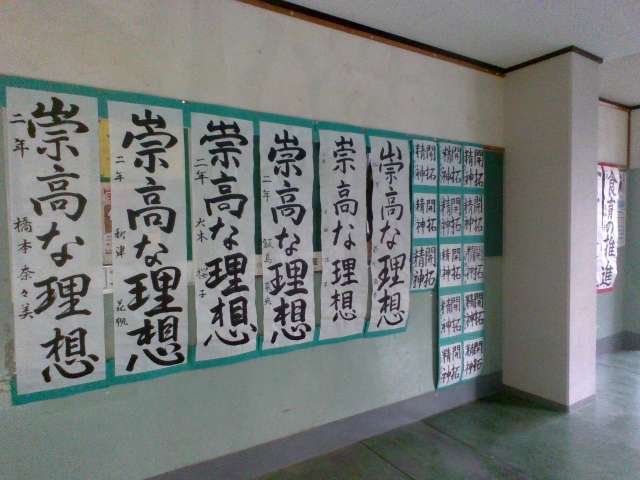 崇高な理想
二年 橋本 奈々美
崇高な理想
二年 新津 花帆
崇高な理想
二年 大木
崇高な理想
二年 飯島
崇高な理想
崇高な理想
開拓
精神
開拓
精神
開拓
精神
開拓
精神
開拓
精神
開拓
精神
開拓
精神
開拓
精神
開拓
精神
開拓
精神
開拓
精神
開拓
精神
開拓
精神
開拓
精神
開拓
精神
食育の推進